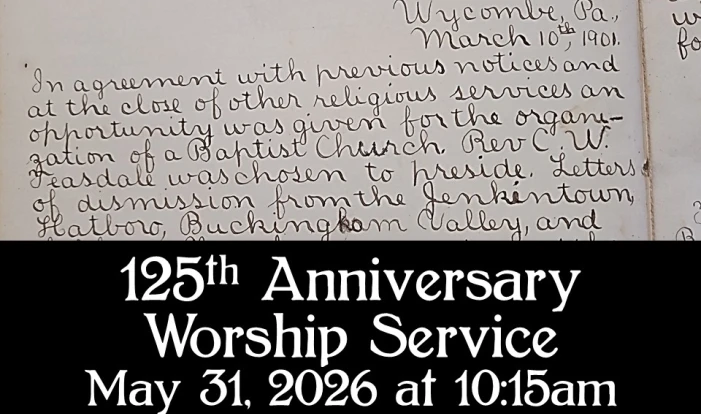 Wycombe, Pa.,
March 10th, 1901.
In agreement with previous notices and
at the close of other religious services an
opportunity was given for the organi-
zation of a Baptist Church. Rev C. W.
Teasdale was chosen to preside. Letters
of dismission from the Jenkintown,
Hatboro, Buckingham Valley, and
125th Anniversary
Worship Service
May 31, 2026 at 10:15am